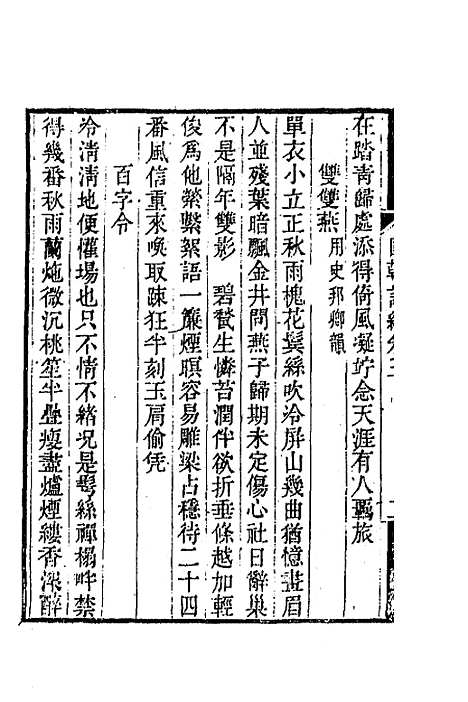 在踏青歸處添得倚風凝竚念天涯有人羈旅
雙雙燕用史邦卿韻
單衣小立正秋雨槐花鬢絲吹冷屏山幾曲猶憶畫眉
人並殘葉暗飄金井問燕子歸期未定傷心社日辭巢
不是隔年雙影 碧甃生憐苔潤伴欲折垂條越加輕
俊爲他縈繫絮語一簾煙暝容易雕梁占穩待二十四
番風信重來喚取踈狂半刻玉肩偷凭
百字令
冷清清地便懽場也只不情不緒况是鬓絲禪榻畔禁
得幾番秋雨蘭炧微沉桃笙半疊瘦盡爐煙縷香濃醉
國朝詞綜